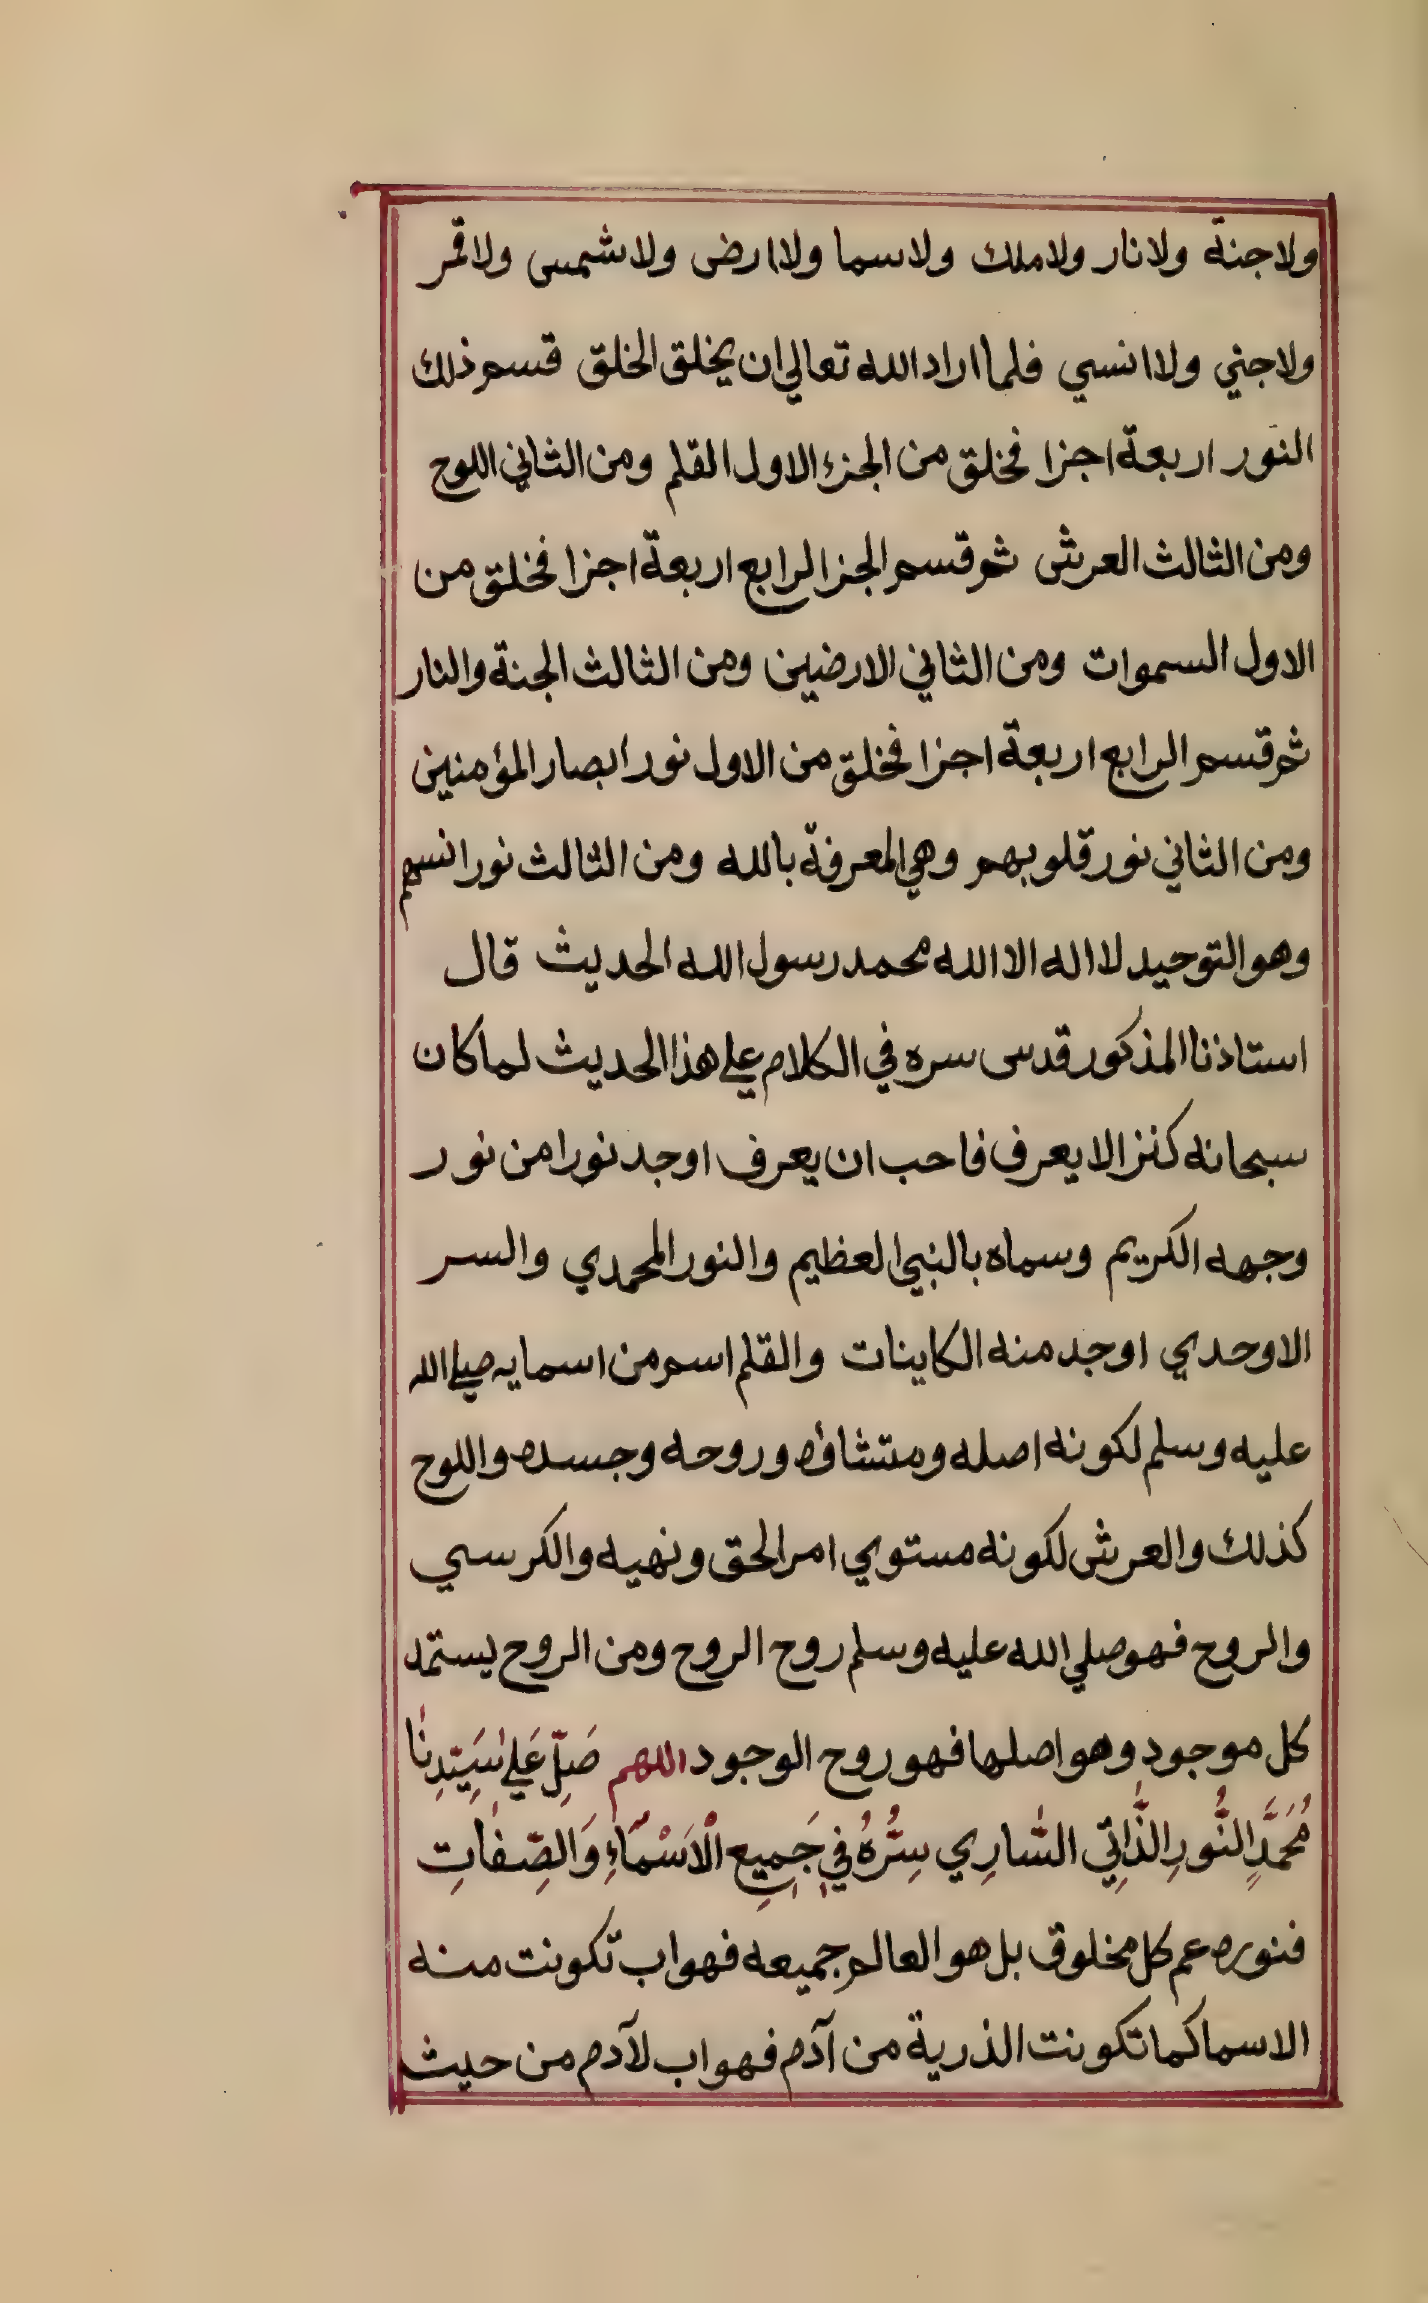 ولا جنة ولا نار ولا ملك ولا سما ولا ارض ولا شمس ولا قمر
ولا جني ولا انسي فلما اراد الله تعالي ان يخلق الخلق قسم ذلك
النور اربعة اجزا فخلق من الجزء الاول القلم ومن الثاني اللوح
ومن الثالث العرش ثم قسم الجز الرابع اربعة اجزا فخلق من
الاول السموات ومن الثاني الارضين ومن الثالث الجنة والنار
ثم قسم الرابع اربعة اجزا فخلق من الاول نور ابصار المؤمنين
ومن الثاني نور قلوبهم وهي المعرفة بالله ومن الثالث نور انسهم
وهو التوحيد لا اله الا الله محمد رسول الله الحديث قال
استاذنا المذكور قدس سره في الكلام علي هذا الحديث لما كان
سبحانه كنزا لا يعرف فاحب ان يعرف اوجد نورا من نور
وجهه الكريم وسماه بالنبي العظيم والنور المحمدي والسر
الاوحدي اوجد منه الكاينات والقلم اسم من اسمايه صلي الله
عليه وسلم لكونه اصله ومنشاؤه وروحه وجسده واللوح
كذلك والعرش لكونه مستوي امر الحق ونهيه والكرسي
والروح فهو صلي الله عليه وسلم روح الروح ومن الروح يستمد
كل موجود وهو اصلها فهو روح الوجود اللهم صَلِّ عَلىٰ سَيِّدِنَا
مُحَمَّدٍ النُّورِ الذَّاتِي السَّارِي سِرُّهُ فِي جَمِيعِ الْاَسْمَاءِ وَالصِّفَاتِ
فنوره عم كل مخلوق بل هو العالم جميعه فهو اب تكونت منه
الاسما كما تكونت الذرية من آدم فهو اب لآدم من حيث